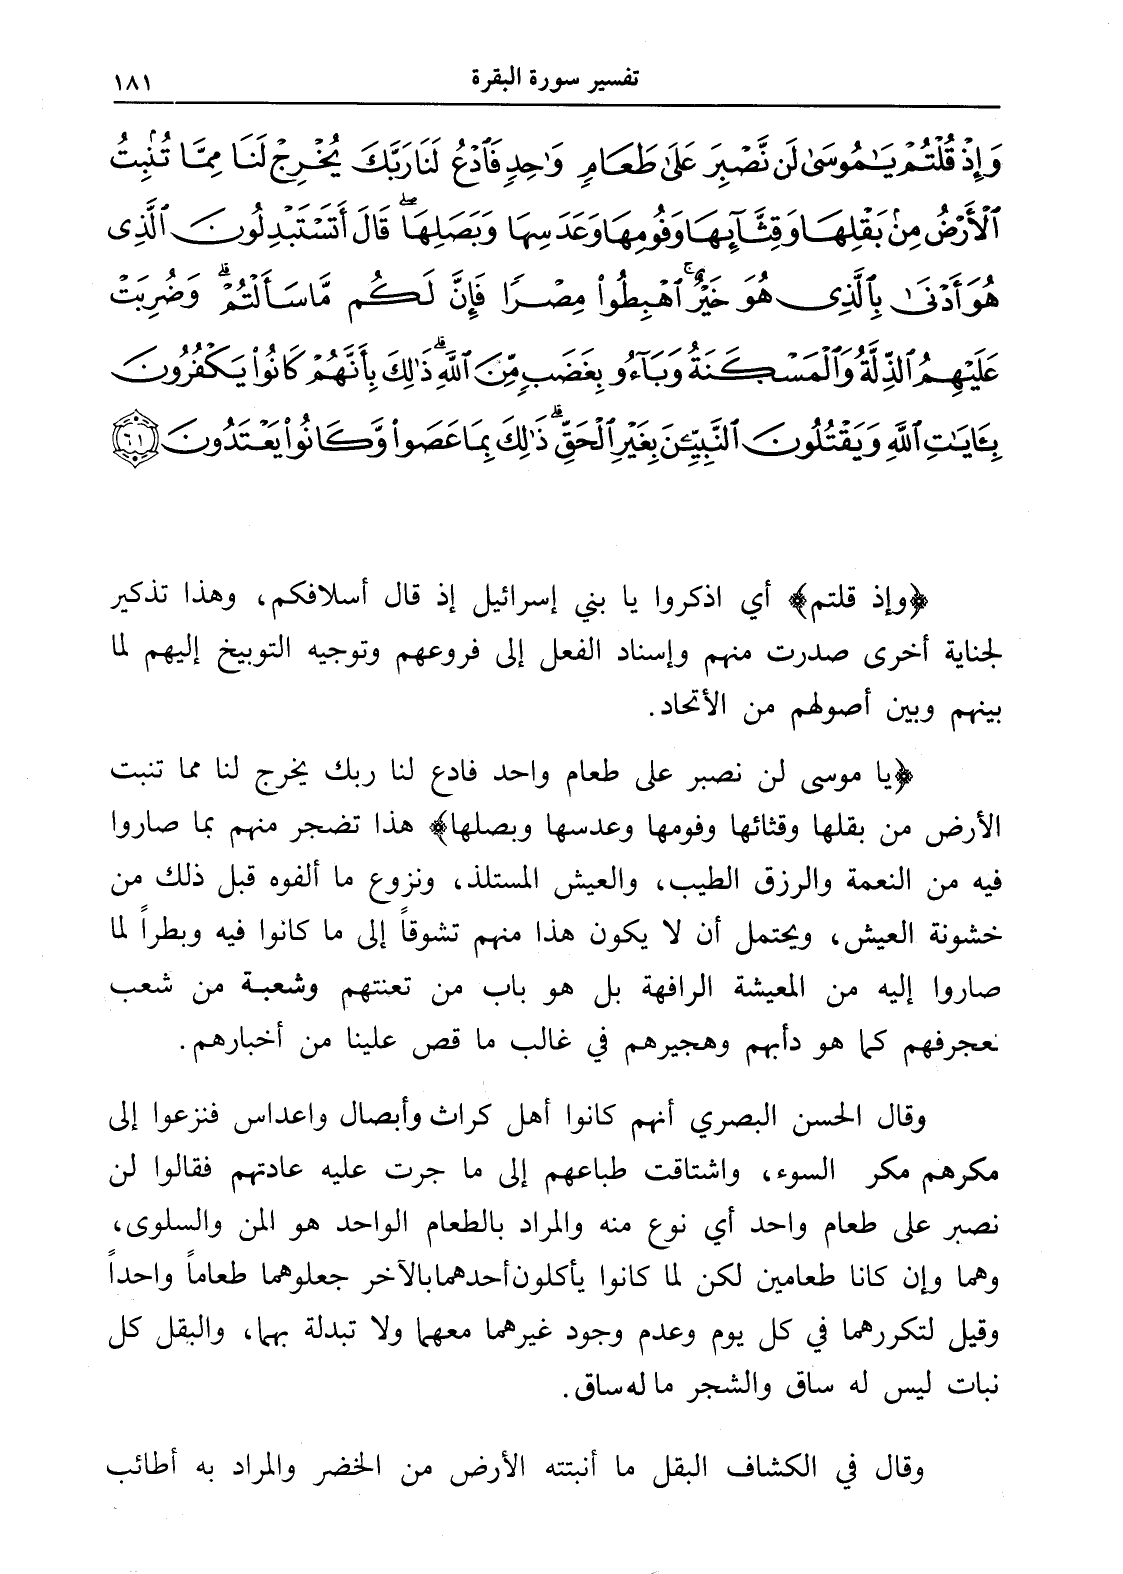 تفسير سورة البقرة ١٨١
وَإِذْ قُلْتُمْ يَٰمُوسَىٰ لَن نَّصْبِرَ عَلَىٰ طَعَامٍ وَٰحِدٍ فَٱدْعُ لَنَا رَبَّكَ يُخْرِجْ لَنَا مِمَّا تُنۢبِتُ
ٱلْأَرْضُ مِنۢ بَقْلِهَا وَقِثَّآئِهَا وَفُومِهَا وَعَدَسِهَا وَبَصَلِهَا ۖ قَالَ أَتَسْتَبْدِلُونَ ٱلَّذِى
هُوَ أَدْنَىٰ بِٱلَّذِى هُوَ خَيْرٌ ۚ ٱهْبِطُوا۟ مِصْرًا فَإِنَّ لَكُم مَّا سَأَلْتُمْ ۗ وَضُرِبَتْ
عَلَيْهِمُ ٱلذِّلَّةُ وَٱلْمَسْكَنَةُ وَبَآءُو بِغَضَبٍ مِّنَ ٱللَّهِ ۗ ذَٰلِكَ بِأَنَّهُمْ كَانُوا۟ يَكْفُرُونَ
بِـَٔايَٰتِ ٱللَّهِ وَيَقْتُلُونَ ٱلنَّبِيِّـۧنَ بِغَيْرِ ٱلْحَقِّ ۗ ذَٰلِكَ بِمَا عَصَوا۟ وَّكَانُوا۟ يَعْتَدُونَ ٦١
﴿وإذ قلتم﴾ أي اذكروا يا بني إسرائيل إذ قال أسلافكم، وهذا تذكير
لجناية أخرى صدرت منهم وإسناد الفعل إلى فروعهم وتوجيه التوبيخ إليهم لما
بينهم وبين أصولهم من الأتحاد.
﴿يا موسى لن نصبر على طعام واحد فادع لنا ربك يخرج لنا مما تنبت
الأرض من بقلها وقثائها وفومها وعدسها وبصلها﴾ هذا تضجر منهم بما صاروا
فيه من النعمة والرزق الطيب، والعيش المستلذ، ونزوع ما ألفوه قبل ذلك من
خشونة العيش، ويحتمل أن لا يكون هذا منهم تشوقاً إلى ما كانوا فيه وبطراً لما
صاروا إليه من المعيشة الرافهة بل هو باب من تعنتهم وشعبة من شعب
تعجرفهم كما هو دأبهم وهجيرهم في غالب ما قص علينا من أخبارهم.
وقال الحسن البصري أنهم كانوا أهل كراث وأبصال واعداس فنزعوا إلى
مكرهم مكر السوء، واشتاقت طباعهم إلى ما جرت عليه عادتهم فقالوا لن
نصبر على طعام واحد أي نوع منه والمراد بالطعام الواحد هو المن والسلوى،
وهما وإن كانا طعامين لكن لما كانوا يأكلون أحدهما بالآخر جعلوهما طعاماً واحداً
وقيل لتكررهما في كل يوم وعدم وجود غيرهما معهما ولا تبدلة بهما، والبقل كل
نبات ليس له ساق والشجر ما له ساق.
وقال في الكشاف البقل ما أنبتته الأرض من الخضر والمراد به أطائب